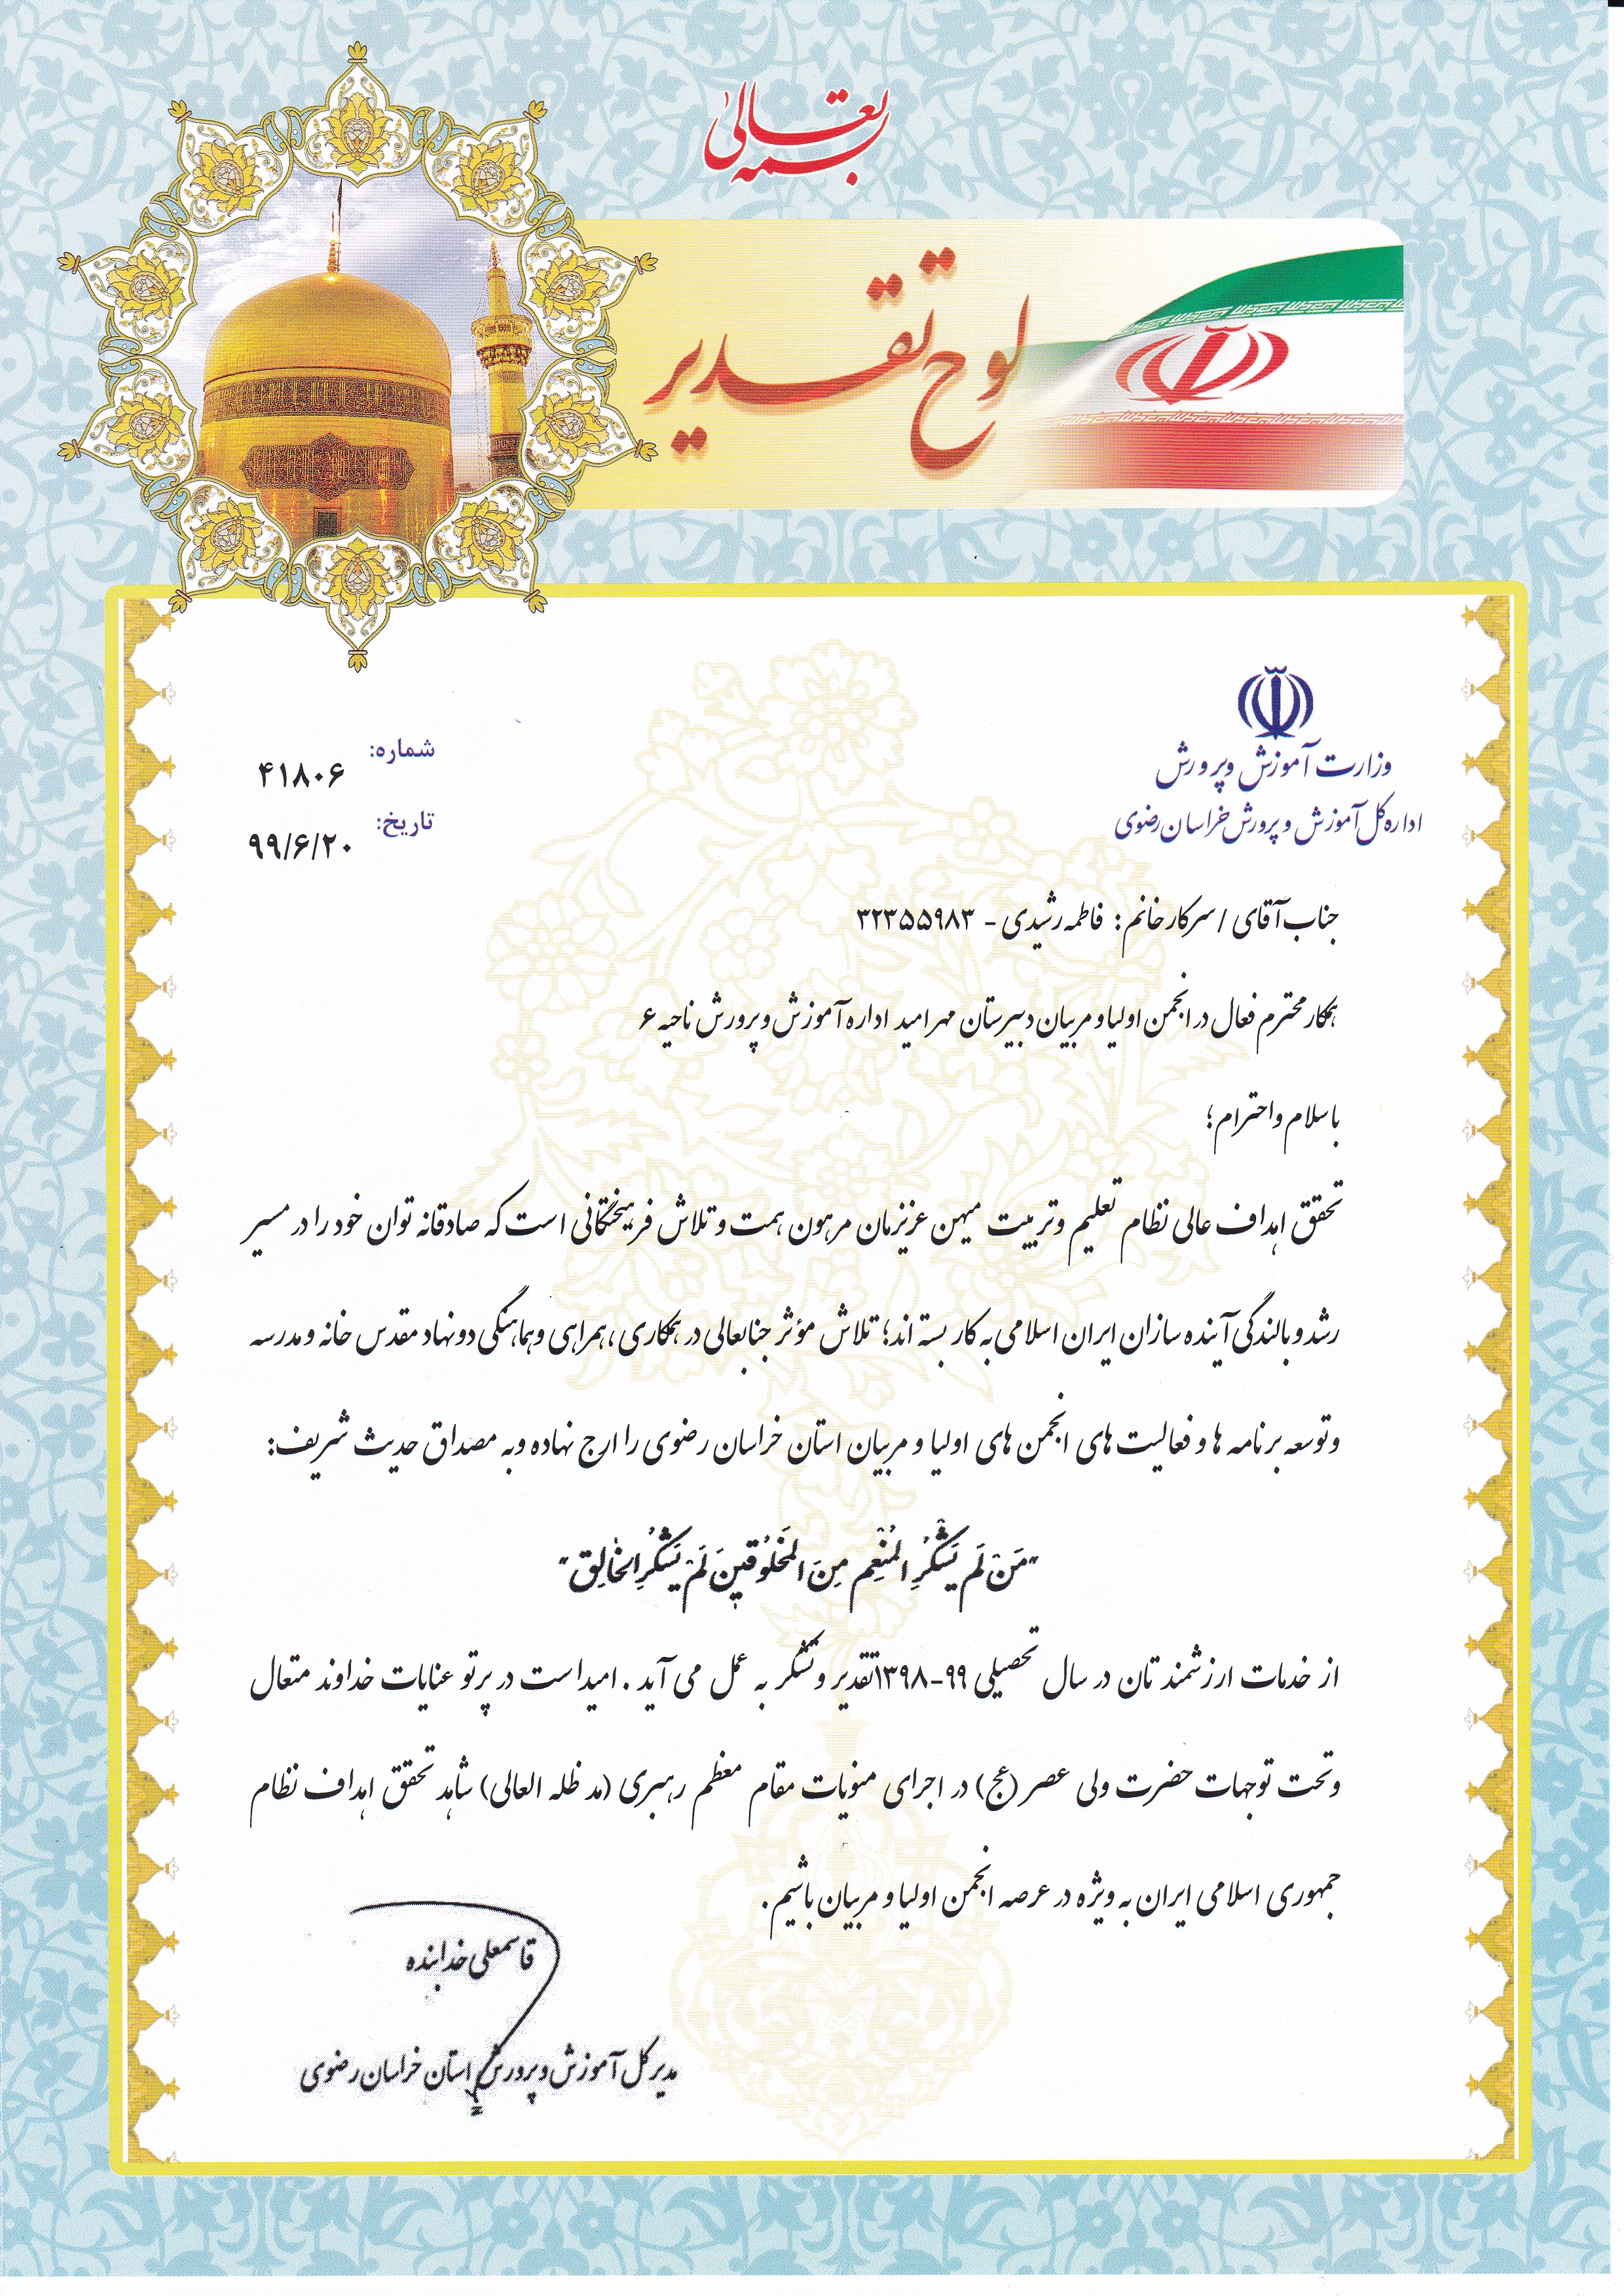 بسمه تعالی
لوح تقدیر
وزارت آموزش و پرورش
اداره کل آموزش و پرورش خراسان رضوی
شماره:
۴۱۸۰۶
تاریخ:
۹۹/۶/۲۰
جناب آقای / سرکار خانم : فاطمه رشیدی - ۳۲۳۵۵۹۸۳
همکار محترم فعال در انجمن اولیا و مربیان دبیرستان مهر امید اداره آموزش و پرورش ناحیه ۶
با سلام و احترام؛
تحقق اهداف عالی نظام تعلیم و تربیت میهن عزیزمان مرهون همت و تلاش فرهیختگانی است که صادقانه توان خود را در مسیر
رشد و بالندگی آینده سازان ایران اسلامی به کار بسته اند؛ تلاش مؤثر جنابعالی در همکاری ، همراهی و هماهنگی دو نهاد مقدس خانه و مدرسه
و توسعه برنامه ها و فعالیت های انجمن های اولیا و مربیان استان خراسان رضوی را ارج نهاده و به مصداق حدیث شریف:
"مَنْ لَم يَشْكُرِ الْمُنْعِم مِنَ الْمَخلُوقينَ لَمْ يَشْكُرِ الْخالِق"
از خدمات ارزشمند تان در سال تحصیلی ۹۹-۱۳۹۸ تقدیر و تشکر به عمل می آید . امید است در پرتو عنایات خداوند متعال
و تحت توجهات حضرت ولی عصر (عج) در اجرای منویات مقام معظم رهبری (مد ظله العالی) شاهد تحقق اهداف نظام
جمهوری اسلامی ایران به ویژه در عرصه انجمن اولیا و مربیان باشیم .
قاسمعلی خدابنده
مدیر کل آموزش و پرورش استان خراسان رضوی